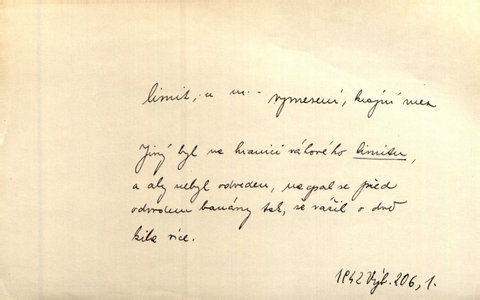 limit, -u m. - vymezení, krajní mez
Jiný byl na hranici váhového limitu,
a aby nebyl odveden, nacpal se před
odvodem banány tak, že vážil o dvě
kila více.
1942 Výb. 206, 1.